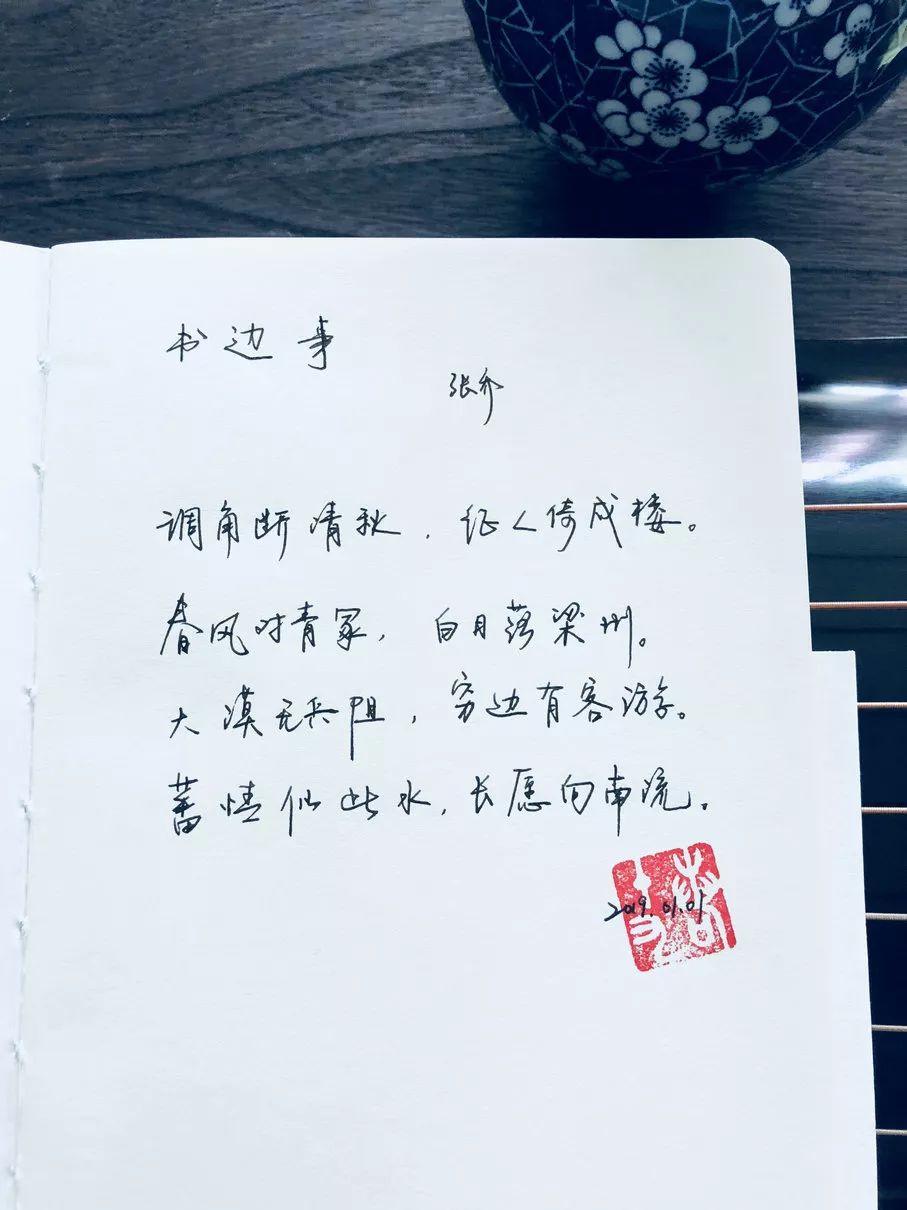 书边事
张乔
调角断清秋，征人倚戍楼。
春风对青冢，白日落梁州。
大漠无兵阻，穷边有客游。
蕃情似此水，长愿向南流。
2019.01.01